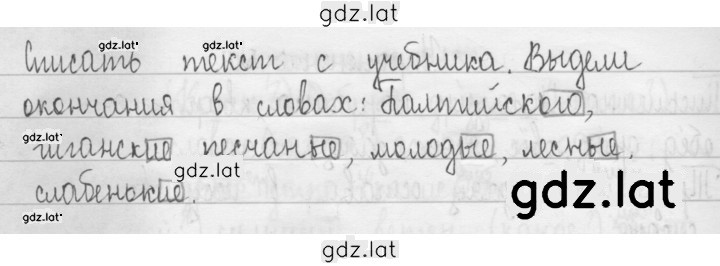 gdz.lat
gdz.lat gdz.lat gdz.lat
Списать текст с учебника. Выдели
окончания в словах: Балтийского,
гигантские песчаные, молодые, лесные.
gdz.lat gdz.lat gdz.lat
слабенькие.
gdz.lat
gdz.lat